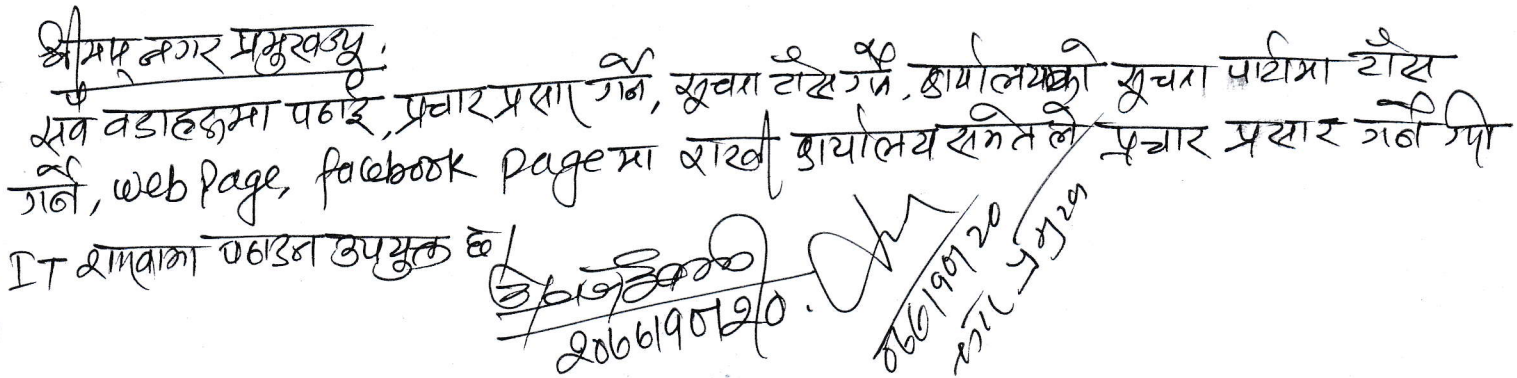 श्रीमान् नगर प्रमुखज्यू.
सबै वडाहरूमा पठाई, प्रचार प्रसार गर्ने, सूचना टाँस गर्ने, कार्यालयको सूचना पाटीमा टाँस
गर्ने, web Page, facebook Page मा राखी कार्यालय समेतले प्रचार प्रसार गर्न
IT शाखामा पठाउन उपयुक्त छ।
2077।90।20.
077।90।20
नगर प्रमुख